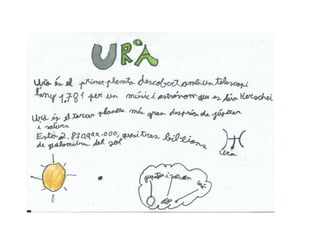 URÀ
Urà és el primer planeta descobert amb un telescopi
l'any 1,781 per un músic i astrònom que es deia Herschel
Urà és el tercer planeta més gran després de júpiter
i saturn
Està 2.870.000.000, quasi tres bilions
de quilometres del sol
Urà